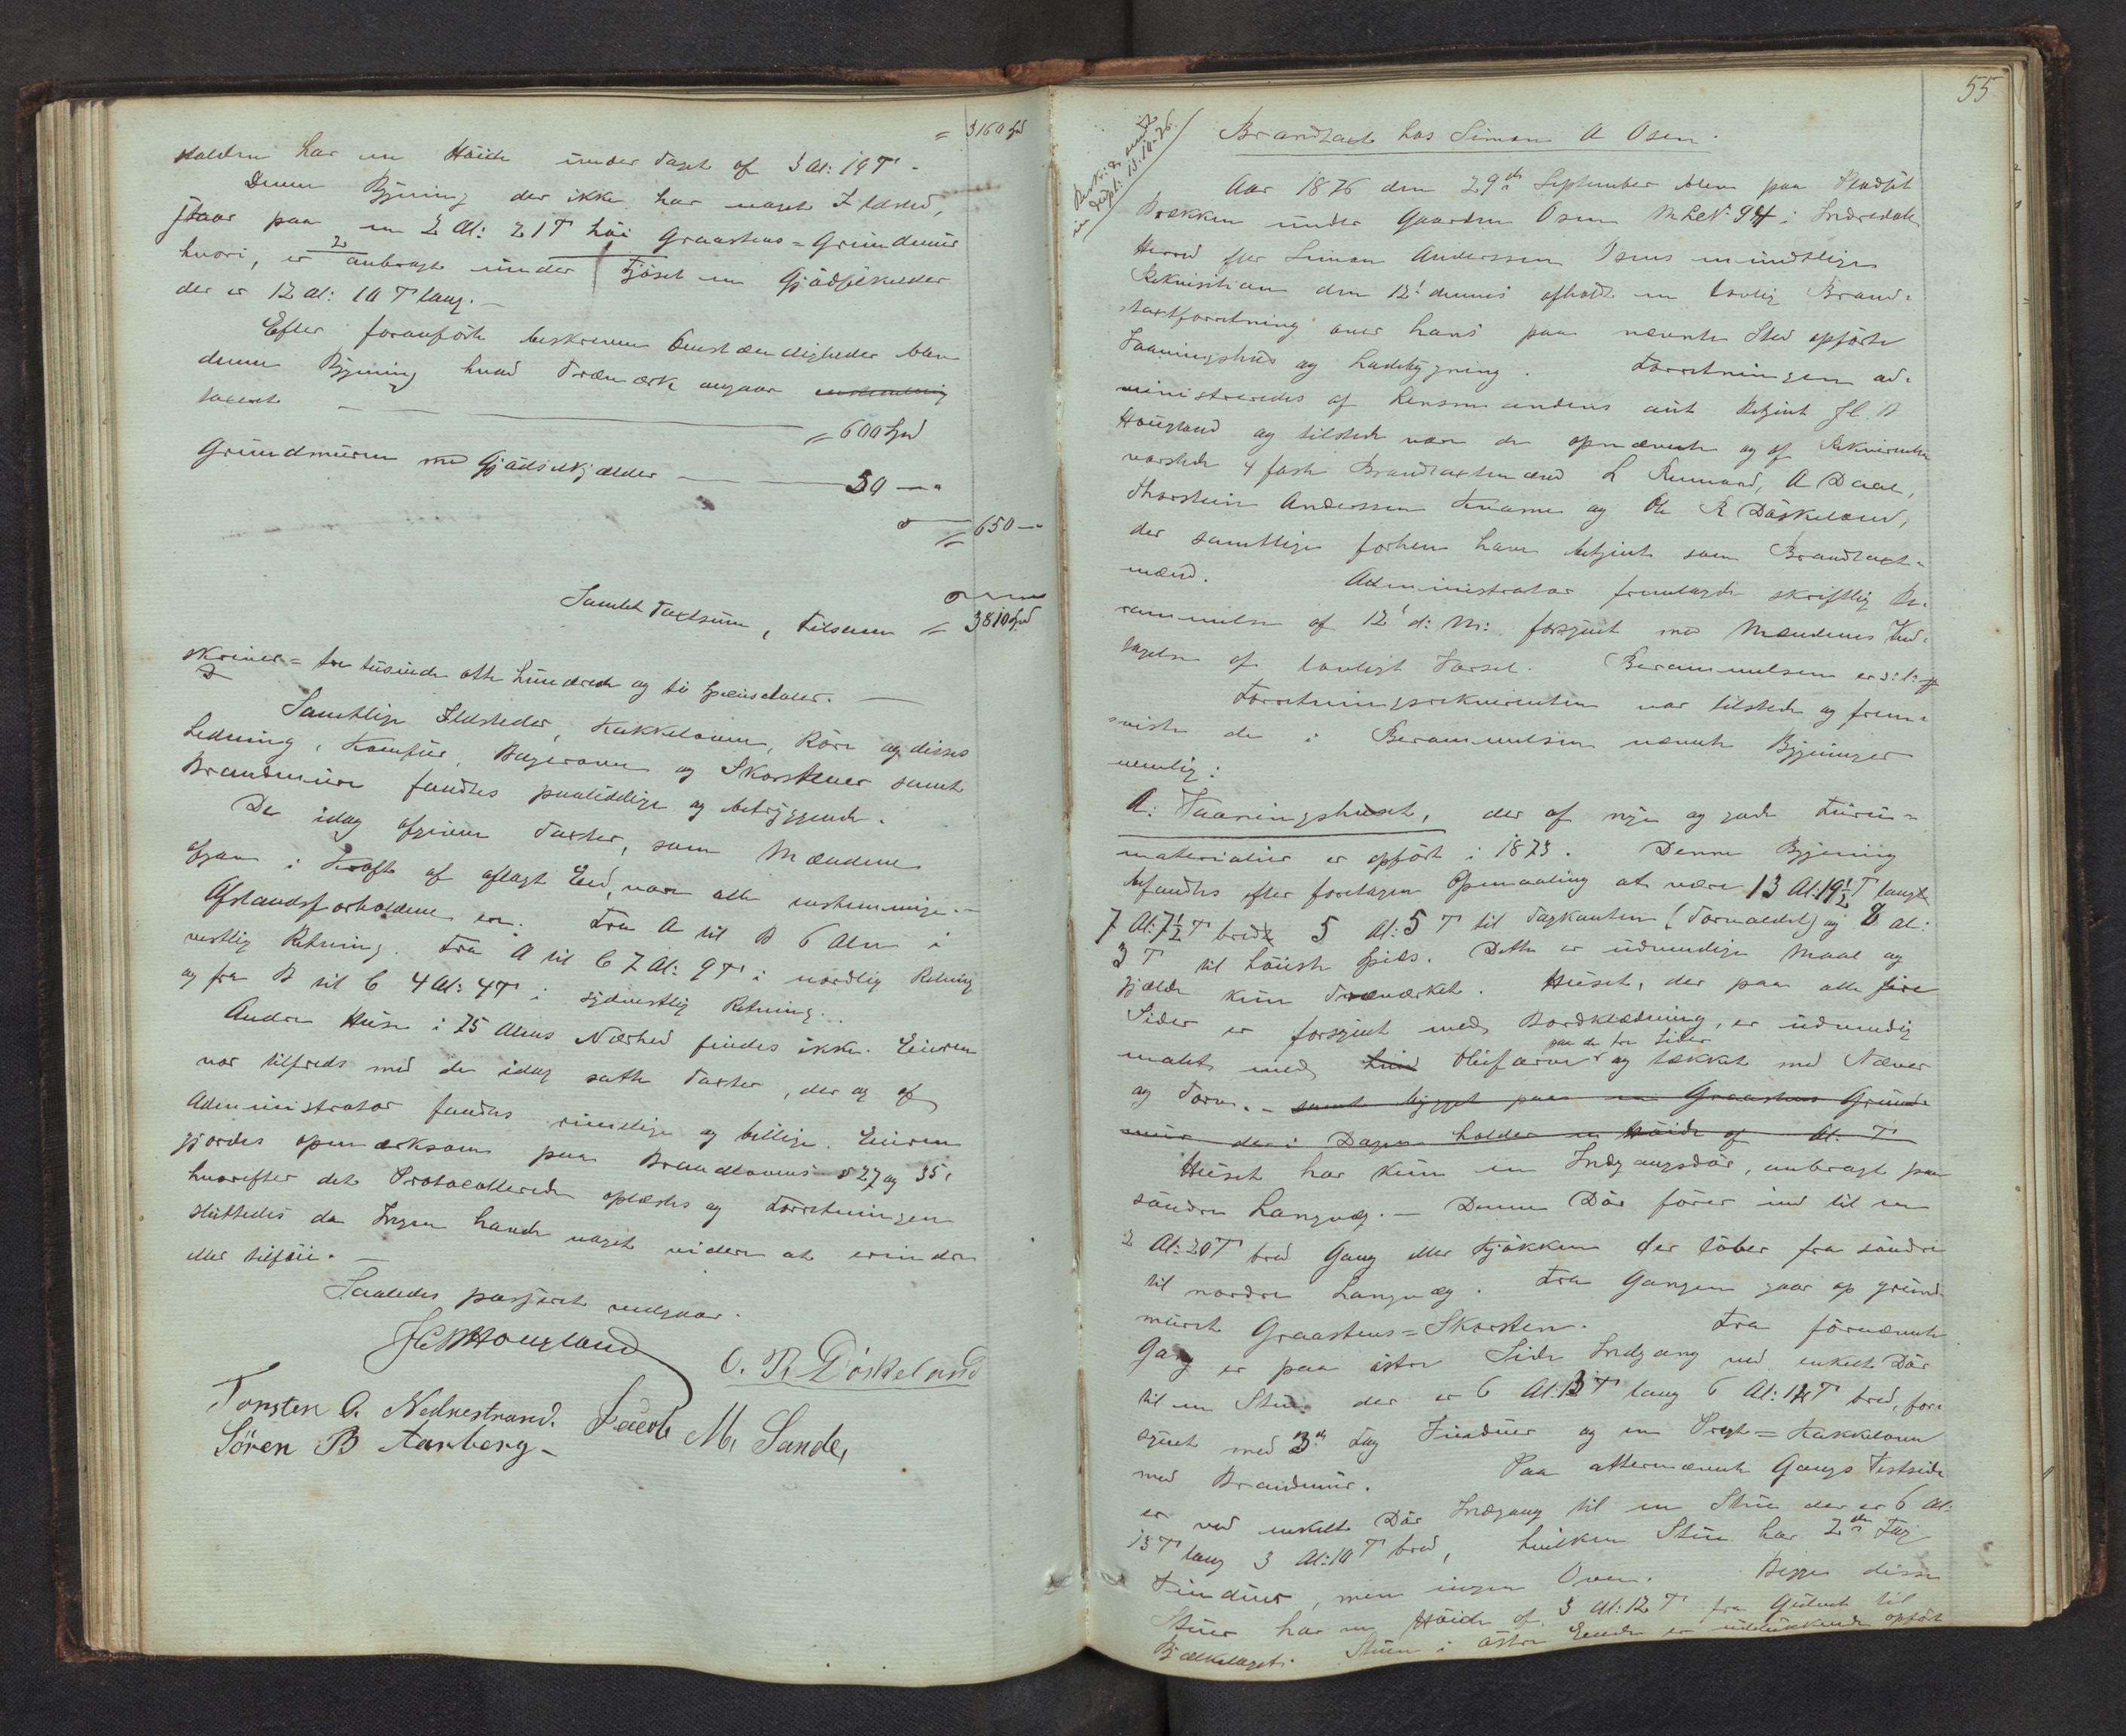 = 3160 Spd
stalden har en Höide under Taget af 3 Al: 19 T.
Denne Bygning der ikke har noget Ildsted,
staar paa en 2 Al: 21 T höi Graastens=Grundmur
hvori, er anbragt under Fjöset en Gjödselkjelder
der er 12 Al: 10 T lang. —
Efter foranförte beskrevne Omstændigheder blev
denne Bygning hvad Træværk angaar enstemmig
taxeret — = 600 Spd
Grundmuren med Gjödselkjælder — 50 — "
= 650 — "
Samlet Taxtsum, tilsammen = 3810 Spd
skriver = tre tusinde otte hundrede og ti Speciedaler. —
Samtlige Ildsteder, Kakkelovne, Rör og disses
Ledning, Komfur, Bagerovn og Skorstener samt
Brandmure fandtes paalidelige og betryggende.
De idag afgivne Taxter, som Mændene
afgav i Kraft af aflagt Eed, vare alle enstemmige. —
Afstandsforholdene ere: Fra A til B 6 Alen i
vestlig Retning. Fra A til C 7 Al: 9 T i nordlig Retning
og fra B til C 4 Al: 4 T i sydvestlig Retning.
Andre Huse i 75 Alens Nærhed findes ikke. Eieren
var tilfreds med de idag satte Taxter, der og af
Administrator fandtes rimelige og billige. Eieren
gjordes opmærksom paa Brandlovens § 27 og 35,
hvorefter det Protocollerede oplæstes og Forretningen
sluttedes da Ingen havde noget videre at erindre
eller tilföie. —
Saaledes passeret vedgaar.
J C B Hougland
O. R. Döskeland
Torsten A. Nednestrand. Jacob M. Sande,
Sören B Aarberg —
55
Beskr. d. sendt
in dupl: 13.10.76.
Brandtaxt hos Simon A Osen.
Aar 1876 den 29de September blev paa Pladset
Brækken under Gaarden Osen M. L. No 94 i Indredale
Herred efter Simon Anderssen Osens mundtlige
Rekvisition den 12te dennes afholdt en lovlig Brand=
taxtforretning over hans paa nævnte Sted opförte
Vaaningshus og Ladebygning. Forretningen ad=
ministreredes af Lensmandens aut Betjent J C B
Hougland og tilstede vare de opnævnte og af Rekvirenten
varslede 4 faste Brandtaxtmænd L Mumand, A Daae,
Thorstein Anderssen Kvamme og Ole R Döskeland,
der samtlige forhen have betjent som Brandtaxt=
mænd. Administrator fremlagde skriftlig Be=
rammelse af 12te d: M: forsynet med Mændenes Ved=
tagelse af lovligt Varsel. Berammelsen er s: l:
Forretningsrekvirenten var tilstede og frem=
viste de i Berammelsen nævnte Bygninger
nemlig:
A: Vaaningshuset, der af nye og gode Furu=
materialier er opfört i 1873. Denne Bygning
befandtes efter foretagen Opmaaling at være 13 Al: 19½ T langt
7 Al: 7½ T bredt 5 Al: 5 T til Tagkanten (Torvaldet) og 8 Al:
3 T til höieste Spids. Dette er udvendige Maal og
gjælde kun Træværket. Huset, der paa alle fire
Sider er forsynet med Bordklædning, er udvendig
malet med hvid Oliefarve paa de tre Sider og tækket med Næver
og Torv. — samt bygget paa en Graastens Grund=
mur der i Dagen holder en Höide af Al: T
Huset har kun en Indgangsdör, anbragt paa
söndre Langvæg. — Denne Dör förer ind til en
2 Al: 20 T bred Gang eller Kjökken der löber fra söndre
til nordre Langvæg. Fra Gangen gaar op grund=
muret Graastens=Skorsten. Fra förnævnte
Gang er paa östre Side Indgang ved enkelt Dör
til en Stue der er 6 Al: 13 T lang 6 Al: 12 T bred, for=
synet med 3de Fag Vinduer og en Kakkelovn
med Brandmur. Paa oftenævnte Gangs Vestside
er ved enkelt Dör Indgang til en Stue der er 6 Al:
13 T lang 3 Al: 10 T bred, hvilken Stue har 2de Fag
Vinduer, men ingen Ovn. Begge disse
Stuer har en Höide af 3 Al: 12 T fra Gulvet til
Bjælkelaget. Stuen i östre Ende er opfört